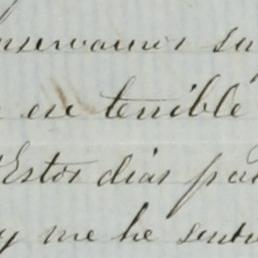 nservamos su
en terrible
Estos dias pa
y me he senti